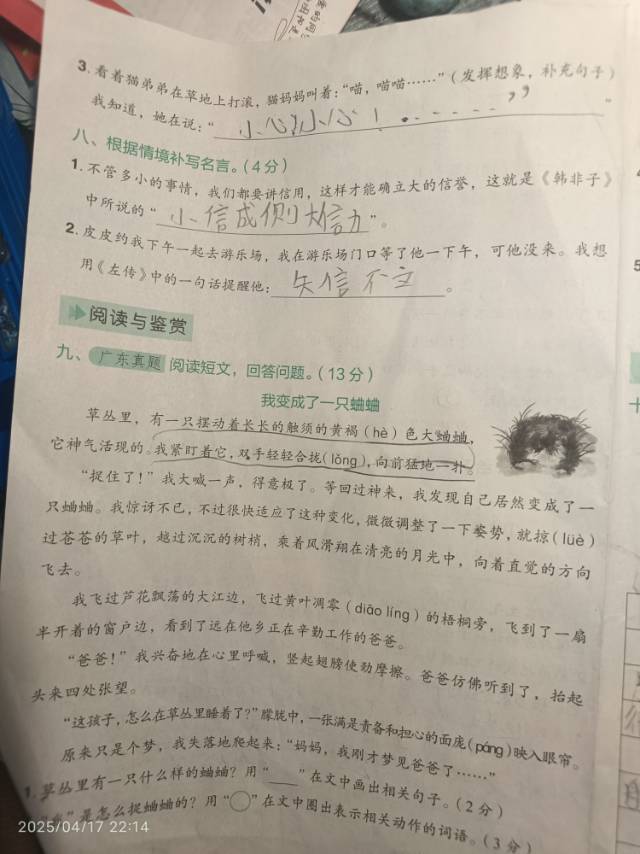 3. 看着猫弟弟在草地上打滚，猫妈妈叫着：“喵，喵喵……”（发挥想象，补充句子）
我知道，她在说：“小心！小心！……”
八、根据情境补写名言。（4分）
1. 不管多小的事情，我们都要讲信用，这样才能确立大的信誉，这就是《韩非子》
中所说的“小信成则大信力”。
2. 皮皮约我下午一起去游乐场，我在游乐场门口等了他一下午，可他没来。我想
用《左传》中的一句话提醒他：失信不立。
阅读与鉴赏
九、广东真题 阅读短文，回答问题。（13分）
我变成了一只蛐蛐
草丛里，有一只摆动着长长的触须的黄褐（hè）色大蛐蛐，
它神气活现的。我紧盯着它，双手轻轻合拢（lǒng），向前猛地一扑。
“捉住了！”我大喊一声，得意极了。等回过神来，我发现自己居然变成了一
只蛐蛐。我惊讶不已，不过很快适应了这种变化，微微调整了一下姿势，就掠（lüè）
过苍苍的草叶，越过沉沉的树梢，乘着风滑翔在清亮的月光中，向着直觉的方向
飞去。
我飞过芦花飘荡的大江边，飞过黄叶凋零（diāo líng）的梧桐旁，飞到了一扇
半开着的窗户边，看到了远在他乡正在辛勤工作的爸爸。
“爸爸！”我兴奋地在心里呼喊，竖起翅膀使劲摩擦。爸爸仿佛听到了，抬起
头来四处张望。
“这孩子，怎么在草丛里睡着了？”朦胧中，一张满是责备和担心的面庞（páng）映入眼帘。
原来只是个梦，我失落地爬起来：“妈妈，我刚才梦见爸爸了……”
1. 草丛里有一只什么样的蛐蛐？用“____”在文中画出相关句子。（2分）
”是怎么捉蛐蛐的？用“○”在文中圈出表示相关动作的词语。（3分）
2025/04/17 22:14